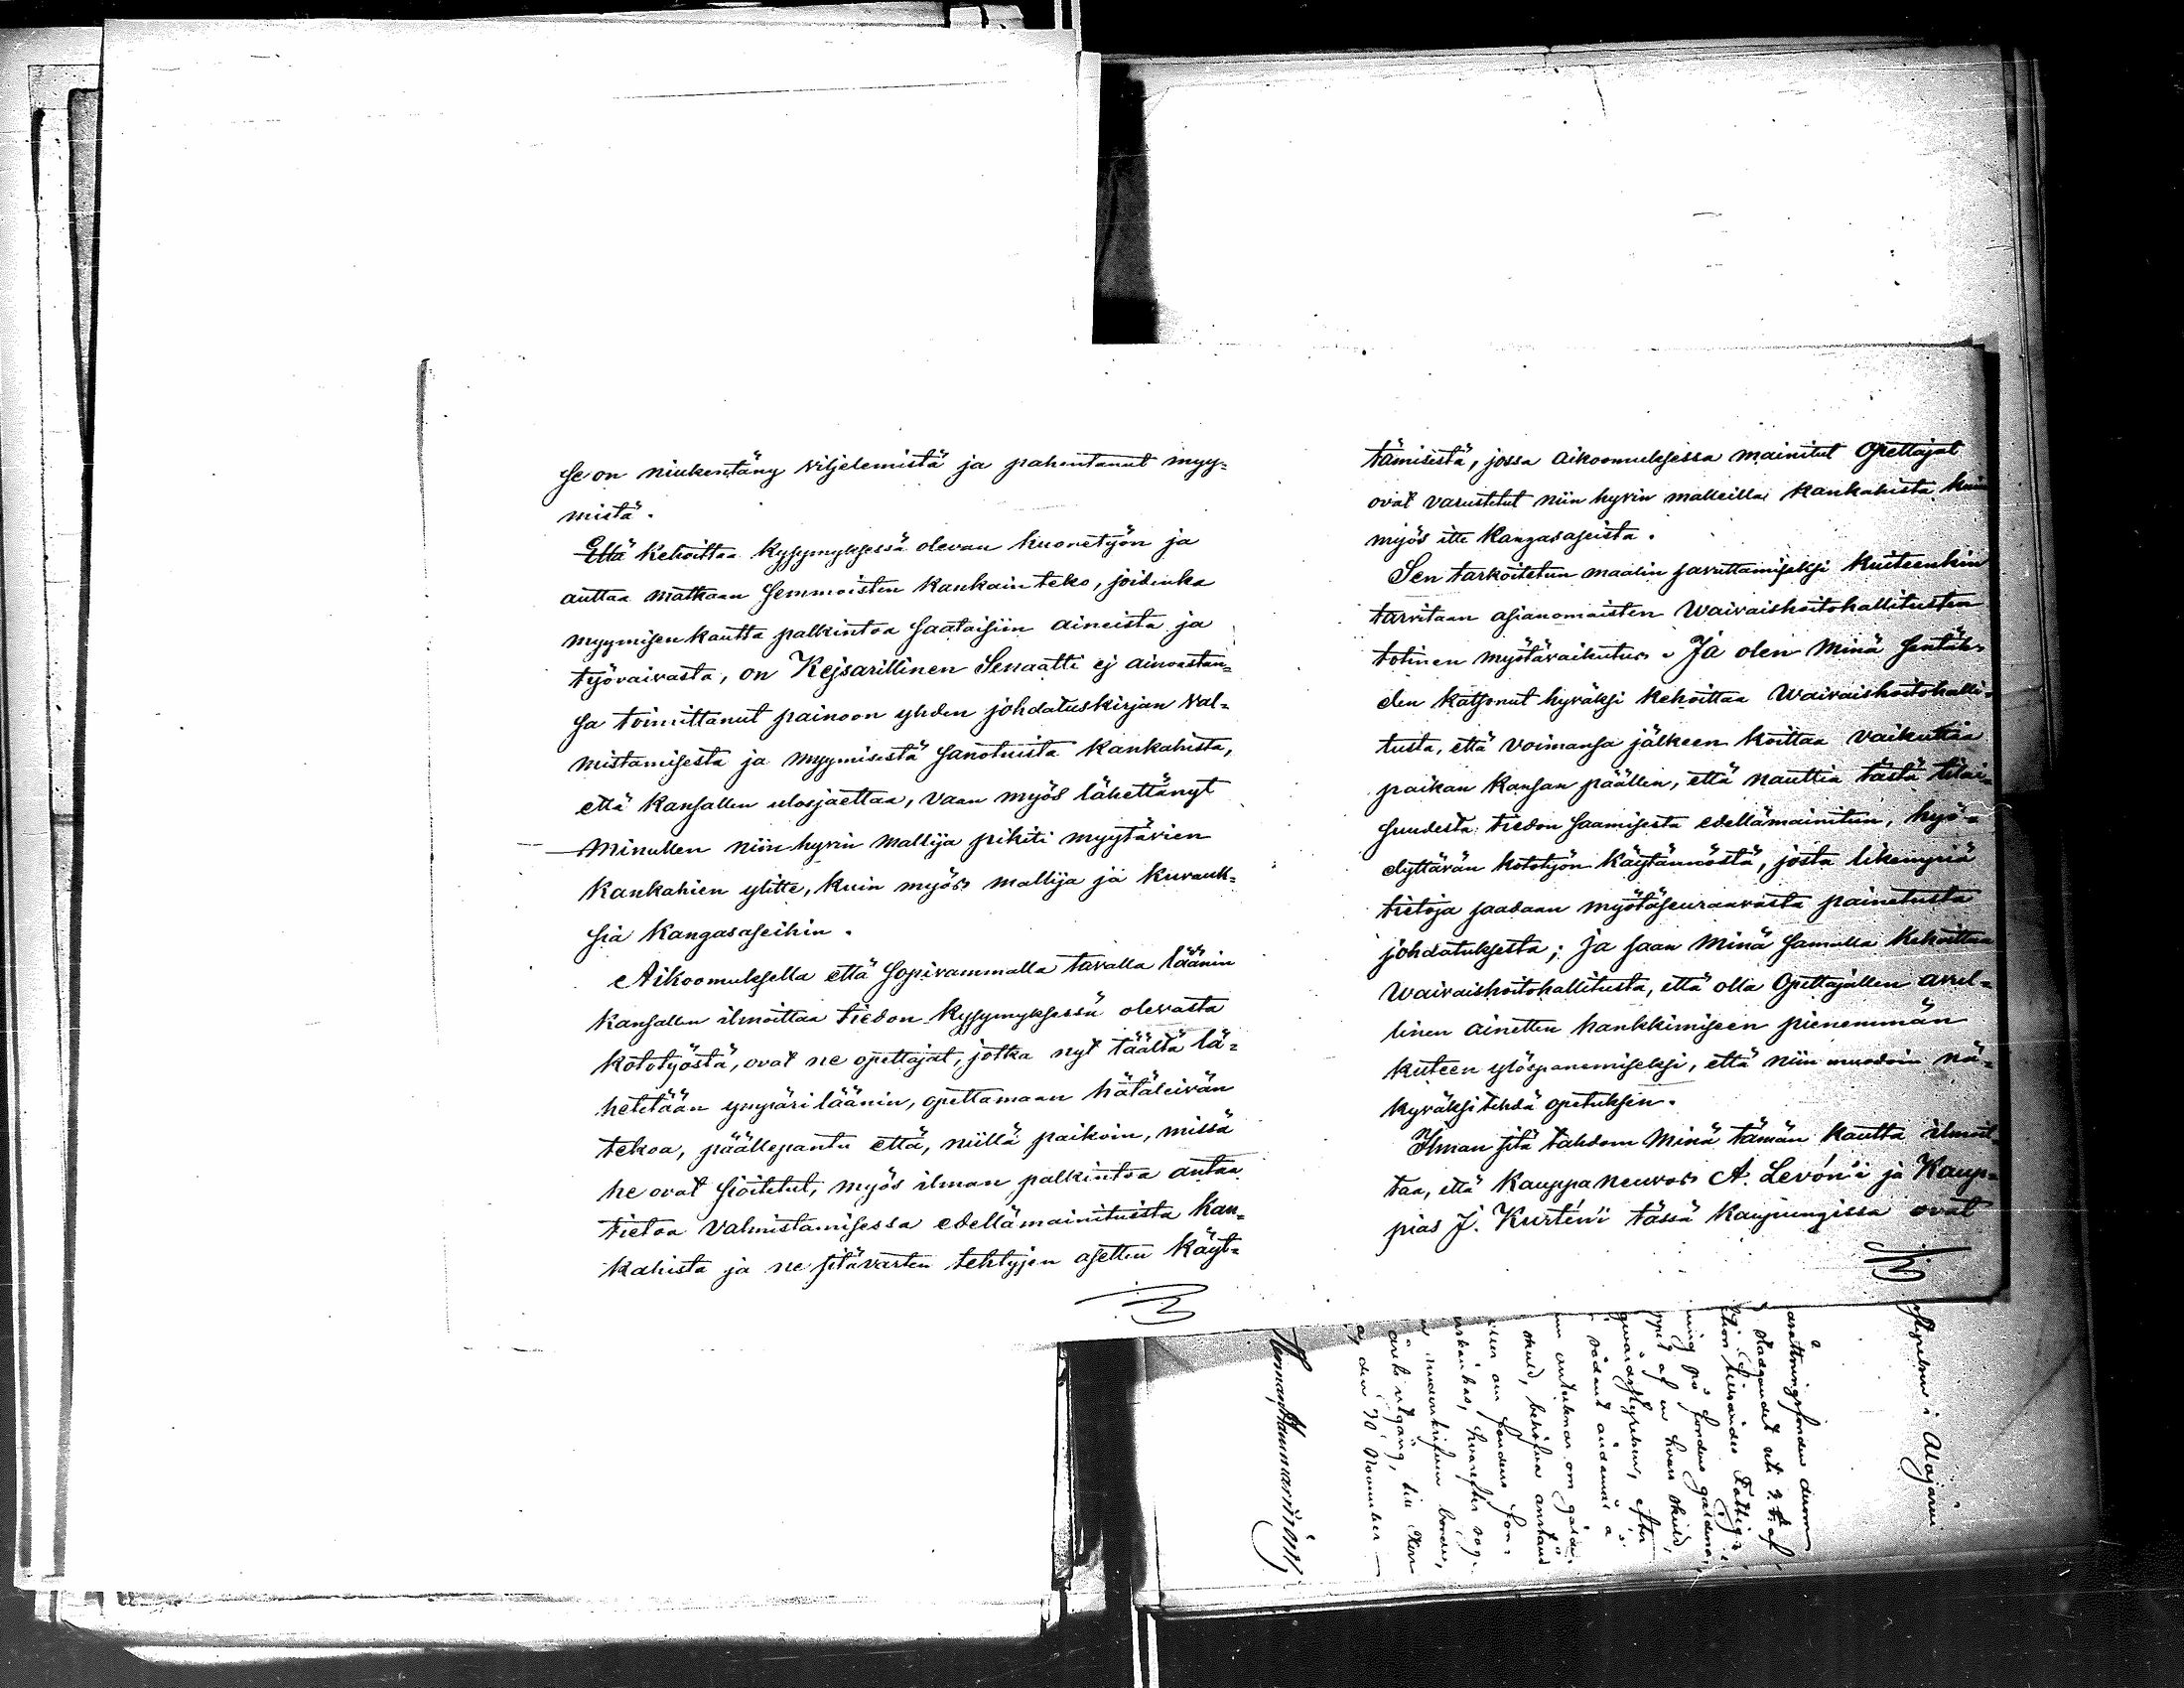 se on niukentäny viljelemistä ja pahentanut myy-
mistä.
Että kehoittaa kysymyksessä olevan huonetyön ja
auttaa matkaan semmoisten kankain teko, joidenka
myymisen kautta palkintoa saataisiin aineista ja
työvaivasta, on Kejsarillinen Senaatti ej ainoastan-
sa toimittanut painoon yhden johdatuskirjan val-
mistamisesta ja myymisestä sanotuista kankahista,
että kansallen ulosjaettaa, vaan myös lähettänyt
minullen niin hyvin mallija prikiti myytävien
kankahien ylitte, kuin myös mallija ja kuvauk-
sia kangasaseihin.
Aikoomuksella että sopivammalla tavalla läänin
kansallen ilmoittaa tiedon kysymyksessä olevasta
kototyöstä, ovat ne opettajat, jotka nyt täältä lä-
hetetään ympäri läänin, opettamaan hätäleivän
tekoa, päällepantu että, niillä paikoin, missä
he ovat sioitetut, myös ilman palkintoa antaa
tietoa valmistamisessa edellämainituista kan-
kahista ja ne sitävarten tehtyjen asetten käyt-
tämisestä, jossa aikoomuksessa mainitut Opettajat
ovat varustetut niin hyvin malleilla kankahista kuin
myös itte kangasaseista.
Sen tarkoitetun maalin savuttamiseksi kuiteenkin
tarvitaan asianomaisten Waivaishoitohallitusten
totinen myötävaikutus. Ja olen minä sentäh-
den katsonut hyväksi kehoittaa Waivaishoitohalli-
tusta, että voimansa jälkeen koittaa vaikuttaa
paikan kansan päällen, että nauttia tästä tilai-
suudesta tiedon saamisesta edellämainitun, hyö-
dyttävän kototyön käytännöstä, josta likempiä
tietoja saadaan myötäseuraavasta painetusta
johdatuksesta; ja saan minä samalla kehoittaa
Waivaishoitohallitusta, että olla Opettajallen avul-
linen ainetten hankkimiseen pienemmän
kuteen ylöspanemiseksi, että niin muodoin nä-
kyväksi tehdä opetuksen.
Ilman sitä tahdon minä tämän kautta ilmoit-
taa, että Kauppaneuvos A. Levón'i ja Kaup-
pias J. Kurtén'i tässä kaupungissa ovat
styrelsen i Alajärvi
sådant ändamål
om fondens
den 30 November
Herman